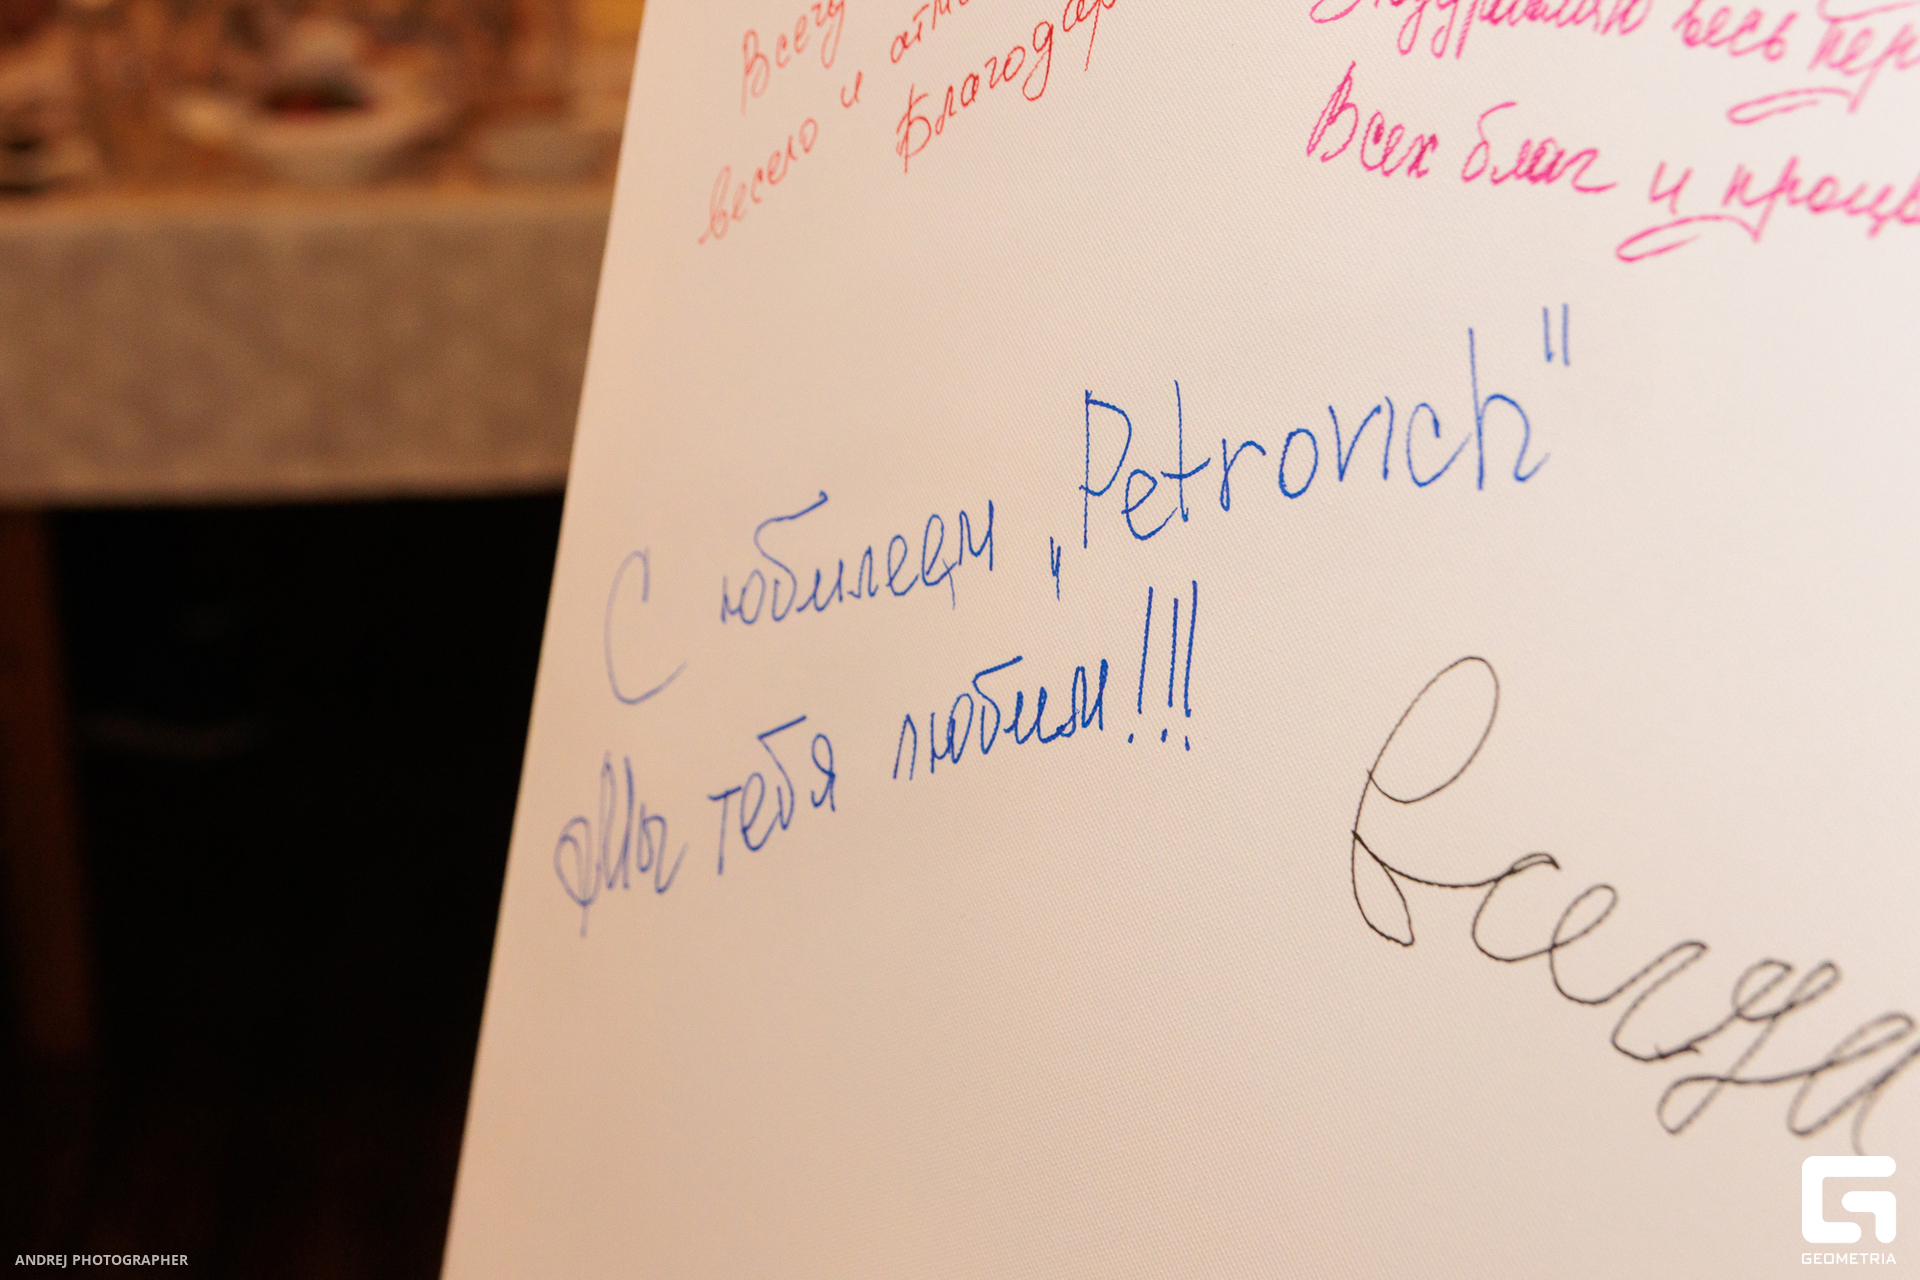 Всегу
весело и
Благодар
Поздравляю весь пер
Всех благ и процв
С юбилеем „Petrovich"
Мы тебя любим!!!
Всегда
ANDREJ PHOTOGRAPHER
GEOMETRIA